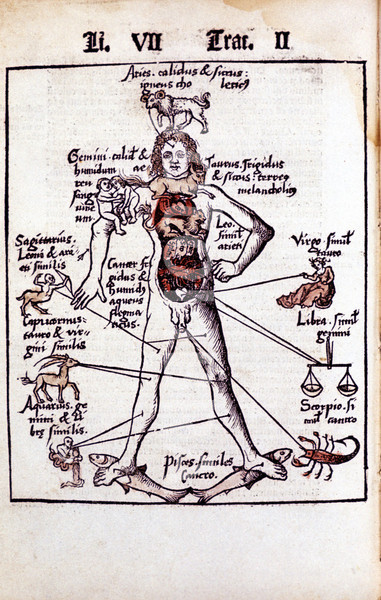 Li. VII Trac. II
Aries. calidus & siccus:
igneus cho letic9
Gemini. calid9 &
humidum ae
reu
sang
uine
um.
Taurus. frigidus
& siccus: terre9
melancholic9
Leo.
simil9
arieti
Sagitarius.
Leoni & are
eti similis
Cancer fri
gidus &
humid9
aqueus
flegma
ticus.
Virgo. simil9
tauro
Capricornus:
tauro & vir-
gini similis
Libra. simil9
gemini
Aquarius. ge
mini & li
bre similis.
Scorpio. si
mil9 cancro
Pisces. similes
Cancro.